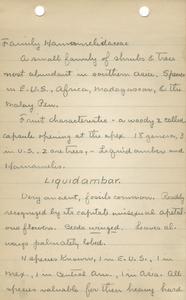 Family Hamamelidaceae
A small family of shrubs & trees
most abundant in southern Asia. Species
in E.U.S., Africa, Madagascar, & the
Malay Pen.
Fruit characteristic - a woody 2 celled
capsule opening at the apex 18 genera, 3
in U.S., 2 are trees, - Liquidambar and
Hamamelis.
Liquidambar.
Very ancient, fossils common. Readily
recognized by its capitate unisexual apetal-
ous flowers. Seeds winged. Leaves al-
ways palmately lobed.
4 species known, 1 in E.U.S., 1 in
Mex., 1 in Central Am., 1 in Asia. All
species valuable for their heavy hard